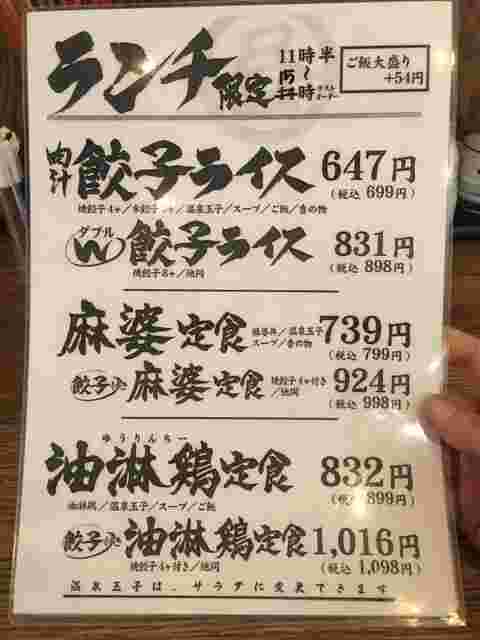 ランチ限定
11時半
〜
時
ラストオーダー
ご飯大盛り
+54円
肉汁餃子ライス 647円
(税込 699円)
焼餃子4ヶ/水餃子 ヶ/温泉玉子/スープ/ご飯/香の物
ダブル
W餃子ライス 831円
(税込 898円)
焼餃子8ヶ/他同
麻婆定食 739円
麻婆丼/温泉玉子
スープ/香の物
(税込 799円)
餃子 麻婆定食 924円
焼餃子4ヶ付き
/他同
(税込 998円)
ゆうりんちー
油淋鶏定食 832円
(税込 899円)
油淋鶏/温泉玉子/スープ/ご飯
餃子 油淋鶏定食 1,016円
焼餃子4ヶ付き/他同
(税込 1,098円)
温泉玉子は、サラダに変更できます